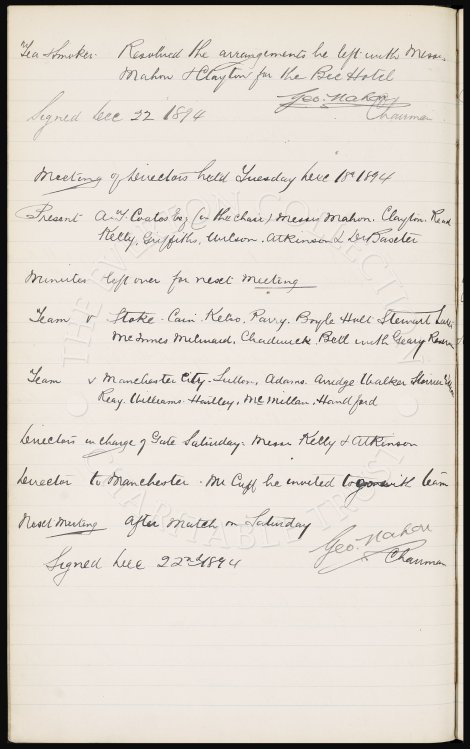 Tea & Smoker Resolved the arrangements be left with Messrs
Mahon & Clayton for the Bee Hotel
Geo. Mahon
Signed Dec 22 1894 Chairman
Meeting of Directors held Tuesday Dec 18 1894
Present A.T. Coates Esq (in the chair) Messrs Mahon, Clayton, Read
Kelly, Griffiths, Wilson, Atkinson & Dr Baxter
Minutes left over for next Meeting
Team v Stoke. Cain. Kelso. Parry. Boyle Holt Stewart
McInnes Milward, Chadwick Bell with Geary Reserve
Team v Manchester City. Sutton. Adams. Arridge Walker Storrier
Reay. Williams. Hartley, McMillan. Handford
Directors in charge of Gate Saturday. Messrs Kelly & Atkinson
Director to Manchester. Mr Cuff be invited to go with team
Next Meeting after match on Saturday
Geo. Mahon
Signed Dec 22nd 1894 Chairman
THE DAVID FRANCE COLLECTION
CHARITABLE TRUST